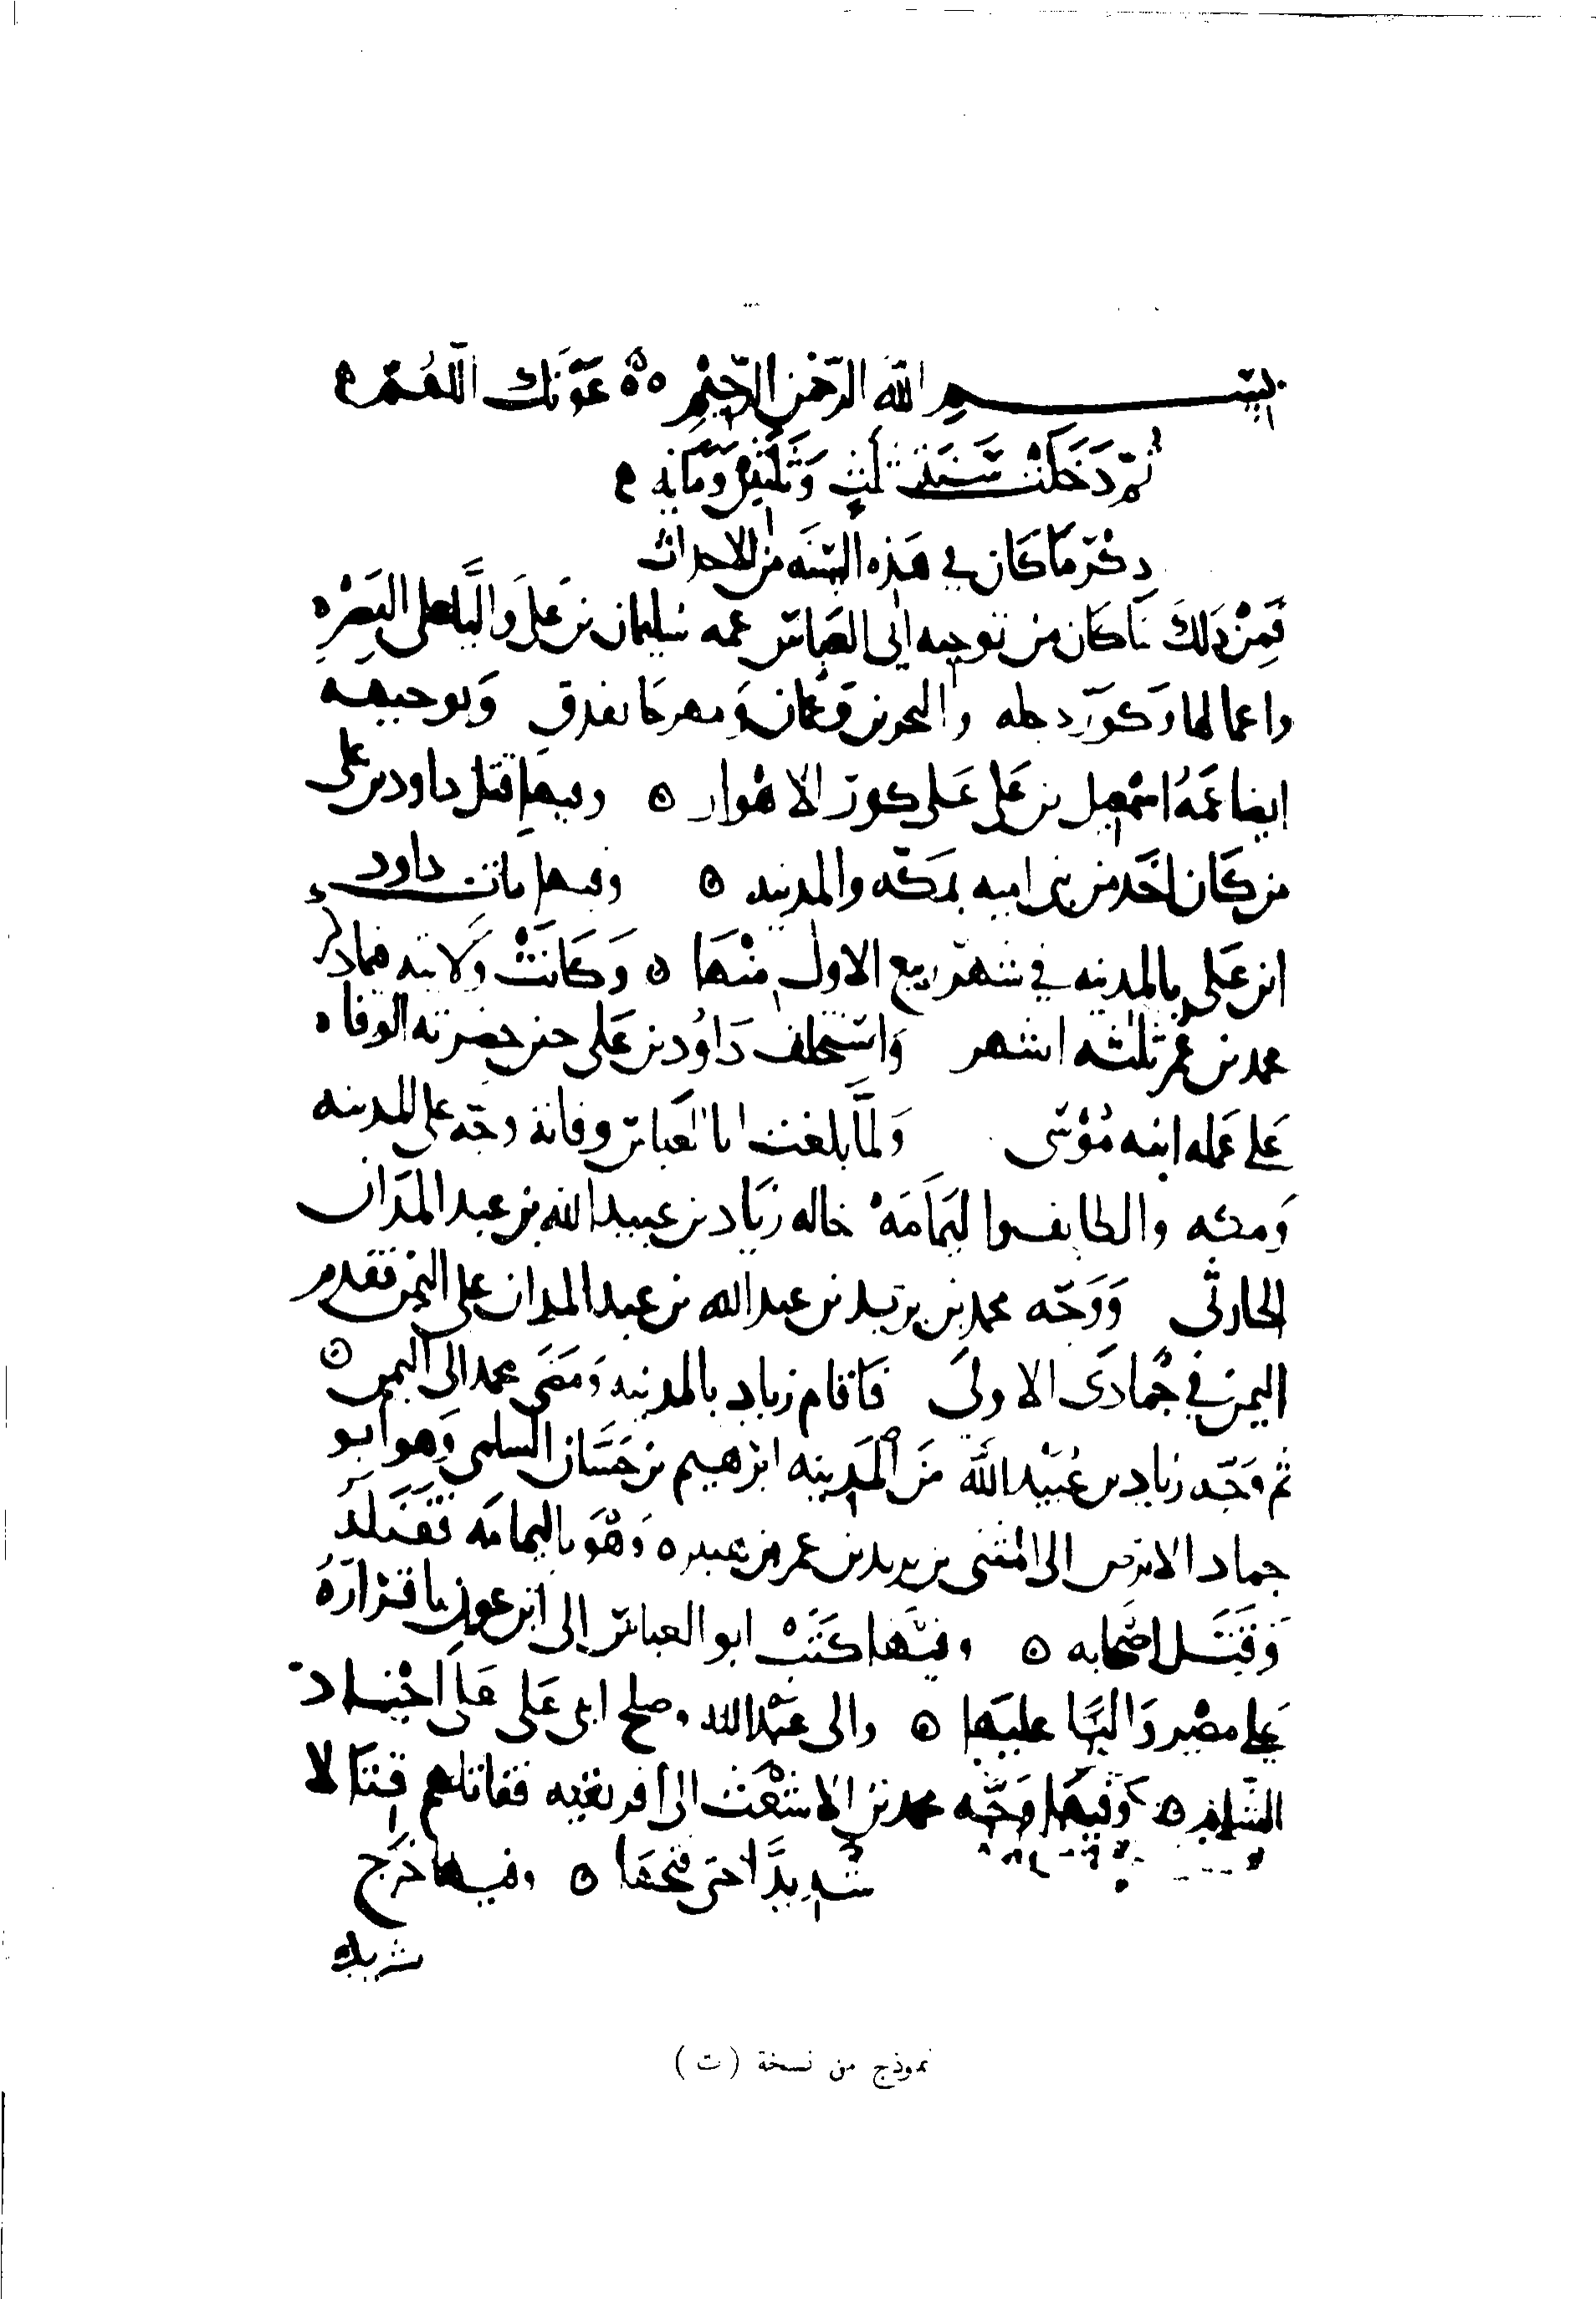 بسم الله الرحمن الرحيم عونك اللهم
ثم دخلت سنة ثلث وثلثين ومائه
ذكر ما كان في هذه السنه من الاحداث
فمن ذلك ما كان من توجيه ابي العباس عمه سليمان بن علي واليا على البصره
واعمالها وكور دجله والبحرين وعمان ومهرجانقذق وتوجيهه
ايضا عمه اسمعيل بن علي على كور الاهواز وفيها قتل داود بن على
من كان اخذ من بنى اميه بمكه والمدينه وفيها مات داود
ابن على بالمدينه في شهر ربيع الاول منها وكانت ولايته فيما ذكر
محمد بن عمر ثلثه اشهر واستخلف داود بن على حين حضرته الوفاه
على عمله ابنه موسى ولما بلغت ابا العباس وفاته وجه على المدينه
ومكه والطايف واليمامه خاله زياد بن عبيد الله بن عبد المدان
الحارثي ووجه محمد بن يزيد بن عبد الله بن عبد المدان على اليمن فقدم
اليمن في جمادى الاولى فاقام زياد بالمدينه ومضى محمد الى اليمن
ثم وجه زياد بن عبيد الله من المدينه ابرهيم بن حسان السلمى وهو ابو
حماد الابرص الى المثنى بن يزيد بن عمر بن هبيره وهو باليمامه فقتله
وقتل اصحابه وفيها كتب ابو العباس الى ابى عون باقراره
على مصر واليا عليها والى عبد الله وصلح ابنى على على اجناد
الشام وفيها وجه محمد بن الاشعث الى افريقيه فقاتلهم قتالا
شديدا حتى فتحها وفيها خرج
شريك
نموذج من نسخة (ت)